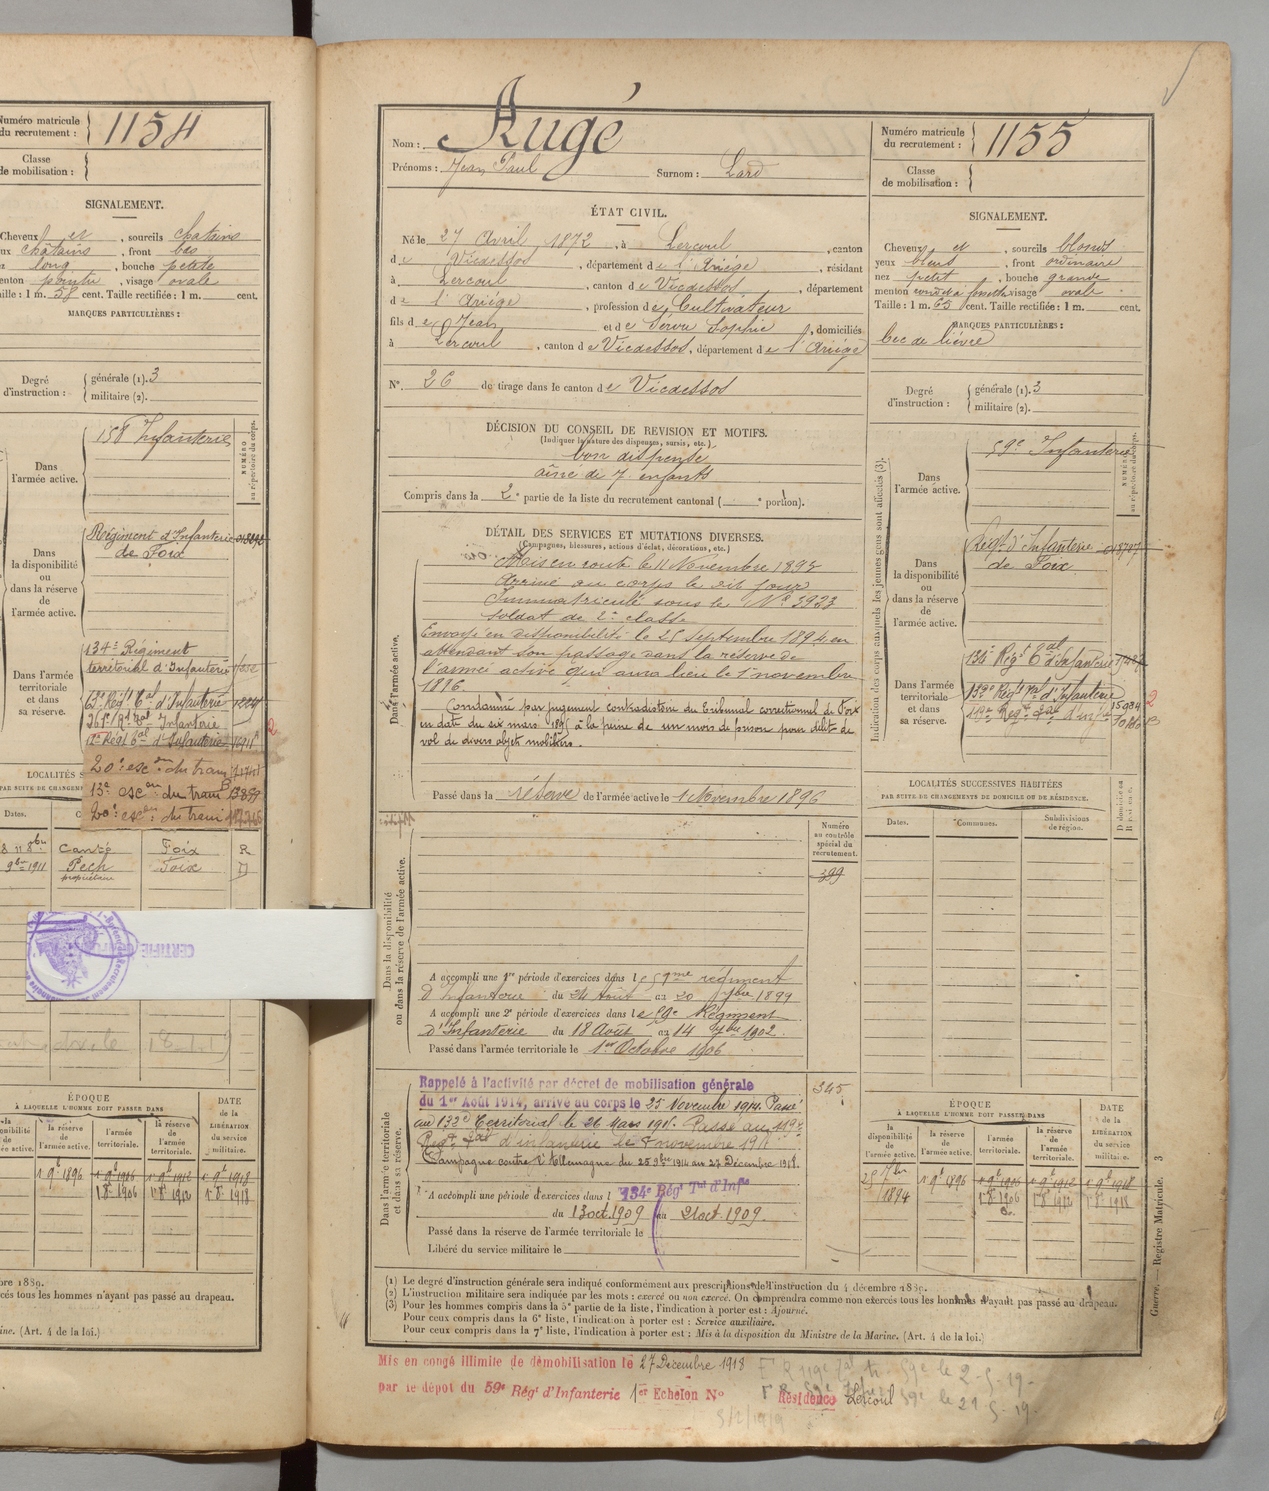 Numéro matricule
du recrutement : 1154
Classe
de mobilisation :
SIGNALEMENT.
Cheveux et , sourcils chatains
yeux châtains , front bas
nez long , bouche petite
menton pointu , visage ovale
Taille : 1 m. 58 cent. Taille rectifiée : 1 m. cent.
MARQUES PARTICULIÈRES :
Degré
d'instruction :
générale (1). 3
militaire (2).
158 Infanterie
NUMÉRO
au répertoire du corps.
Dans
l'armée active.
Régiment d'Infanterie
de Foix
Dans
la disponibilité
ou
dans la réserve
de
l'armée active.
134e Régiment
territorial d'Infanterie
Dans l'armée
territoriale
et dans
sa réserve.
20e escon du train
13e escon du train
20e escon du train
LOCALITÉS
Dates.
Canté Foix R
9bre 1911 Pech Foix D
propriétaire
CERTIFIÉ
ÉPOQUE
À LAQUELLE L'HOMME DOIT PASSER DANS
DATE
de la
LIBÉRATION
du service
militaire.
la réserve
de
l'armée active.
l'armée
territoriale.
la réserve
de l'armée
territoriale.
1 9b 1896 1 9b 1906 1 9b 1912 1 9b 1918
1 8b 1906 1 8b 1912 1 8b 1918
Nom : Augé
Prénoms : Jean Paul Surnom : Lard
Numéro matricule
du recrutement : 1155
Classe
de mobilisation :
ÉTAT CIVIL.
Né le 27 Avril 1872 , à Lercoul , canton
de Vicdessos , département de l'Ariège , résidant
à Lercoul , canton de Vicdessos , département
de l'Ariège , profession de Cultivateur
fils de Jean et de Servu Sophie , domiciliés
à Lercoul , canton de Vicdessos, département de l'Ariège
N°. 26 de tirage dans le canton de Vicdessos
DÉCISION DU CONSEIL DE REVISION ET MOTIFS.
(Indiquer la nature des dispenses, sursis, etc.)
bon dispensé
aîné de 7 enfants
Compris dans la 2e partie de la liste du recrutement cantonal ( e portion).
DÉTAIL DES SERVICES ET MUTATIONS DIVERSES.
(Campagnes, blessures, actions d'éclat, décorations, etc.)
Dans l'armée active.
Mis en route le 11 Novembre 1893
Arrivé au corps le dit jour
Immatriculé sous le No 3923
soldat de 2e classe
Envoyé en disponibilité le 25 Septembre 1894 en
attendant son passage dans la réserve de
l'armée active qui aura lieu le 1er novembre
1896.
Condamné par jugement contradictoire du Tribunal correctionnel de Foix
en date du six mars 1895 à la peine de un mois de prison pour délit de
vol de divers objets mobiliers.
Passé dans la réserve de l'armée active le 1 Novembre 1896
Numéro
au contrôle
spécial du
recrutement.
399
Dans la disponibilité
ou dans la réserve de l'armée active.
A accompli une 1re période d'exercices dans le 59me régiment
d'Infanterie du 24 Août au 20 7bre 1899
A accompli une 2e période d'exercices dans le 59e Régiment
d'Infanterie du 18 Août au 14 7bre 1902.
Passé dans l'armée territoriale le 1er Octobre 1906
345
Dans l'armée territoriale
et dans sa réserve.
Rappelé à l'activité par décret de mobilisation générale
du 1er Août 1914, arrivé au corps le 25 Novembre 1914 Passé
au 132e Territorial le 26 Mars 1915. Passé au 119e
Regt Tal d'infanterie le 8 novembre 1915
Campagne contre l'Allemagne du 25 9bre 1914 au 27 Décembre 1918.
A accompli une période d'exercices dans l 134e Régt Tal d'Infie
du 13 oct. 1909 au 21 oct. 1909.
Passé dans la réserve de l'armée territoriale le
Libéré du service militaire le
SIGNALEMENT.
Cheveux et , sourcils blonds
yeux bleus , front ordinaire
nez petit , bouche grande
menton rond et à fossette visage ovale
Taille : 1 m. 65 cent. Taille rectifiée : 1 m. cent.
MARQUES PARTICULIÈRES :
bec de lièvre
Degré
d'instruction :
générale (1). 3
militaire (2).
Indication des corps auxquels les jeunes gens sont affectés (3).
59e Infanterie
NUMÉRO
au répertoire du corps.
Dans
l'armée active.
Régt d'Infanterie
de Foix
Dans
la disponibilité
ou
dans la réserve
de
l'armée active.
134e Régt Tal d'Infanterie
132e Régt Tal d'Infanterie
119e Regt Tal d'inf
Dans l'armée
territoriale
et dans
sa réserve.
LOCALITÉS SUCCESSIVES HABITÉES
PAR SUITE DE CHANGEMENTS DE DOMICILE OU DE RÉSIDENCE.
Dates.
Communes.
Subdivisions
de région.
D domicile
R résidence
ÉPOQUE
À LAQUELLE L'HOMME DOIT PASSER DANS
DATE
de la
LIBÉRATION
du service
militaire.
la
disponibilité
de
l'armée active.
la réserve
de
l'armée active.
l'armée
territoriale.
la réserve
de l'armée
territoriale.
25 7bre 1894 1 9b 1896 1 9b 1906 1 9b 1912 1 9b 1918
1 8b 1906 1 8b 1912 1 8b 1918
Guerre. — Registre Matricule. 3
(1) Le degré d'instruction générale sera indiqué conformément aux prescriptions de l'instruction du 4 décembre 1889.
(2) L'instruction militaire sera indiquée par les mots : exercé ou non exercé. On comprendra comme non exercés tous les hommes n'ayant pas passé au drapeau.
(3) Pour les hommes compris dans la 5e partie de la liste, l'indication à porter est : Ajourné.
Pour ceux compris dans la 6e liste, l'indication à porter est : Service auxiliaire.
Pour ceux compris dans la 7e liste, l'indication à porter est : Mis à la disposition du Ministre de la Marine. (Art. 4 de la loi.)
Mis en congé illimité de démobilisation le 27 Décembre 1918
par le dépôt du 59e Régt d'Infanterie 1er Echelon No Résidence Lercoul